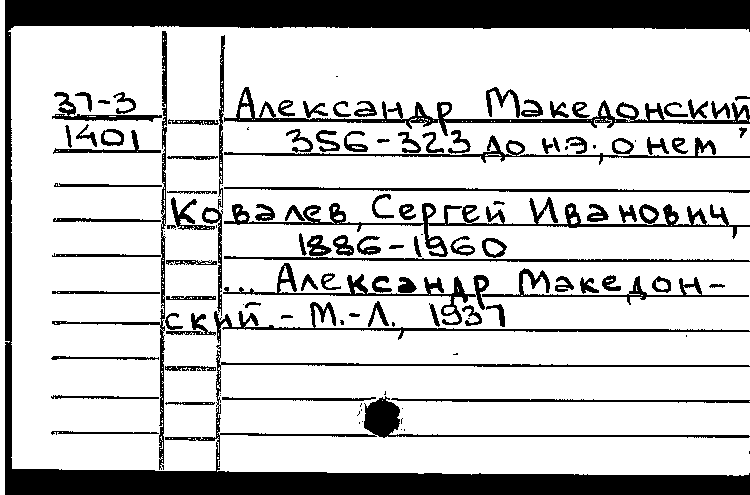 37-3
1401
Александр Македонский,
356-323 до н.э., о нем
Ковалев, Сергей Иванович,
1886-1960
... Александр Македон-
ский. - М.-Л., 1937